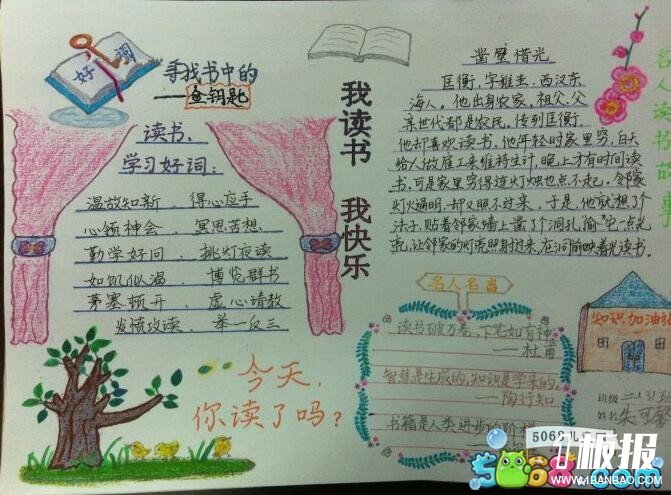 好词
寻找书中的
——金钥匙
读书、
学习好词:
温故知新、得心应手
心领神会、冥思苦想
勤学好问、挑灯夜读
如饥似渴、博览群书
茅塞顿开、虚心请教
发愤攻读、举一反三
我读书 我快乐
凿壁借光
匡衡,字稚圭,西汉东
海人。他出身农家,祖父、父
亲世代都是农民。传到匡衡,
他却喜欢读书,他年轻时家里穷,白天
给人做雇工来维持生计,晚上才有时间读
书,可是家里穷得连灯烛也点不起。邻家
灯火通明,却又照不过来,于是,他就想个
法子,贴着邻家墙上凿了个洞孔"偷"它一点光
亮,让邻家的灯亮照射过来,在洞前映着光读书。
名人读书故事
名人名言
读书破万卷,下笔如有神
——杜甫
智慧是生成的,知识是学来的。
——陶行知
书籍是人类进步的阶梯
知识加油站
班级
姓名 朱可
今天,
你读了吗?
板报
5068
.com
www.41BANBAO.com